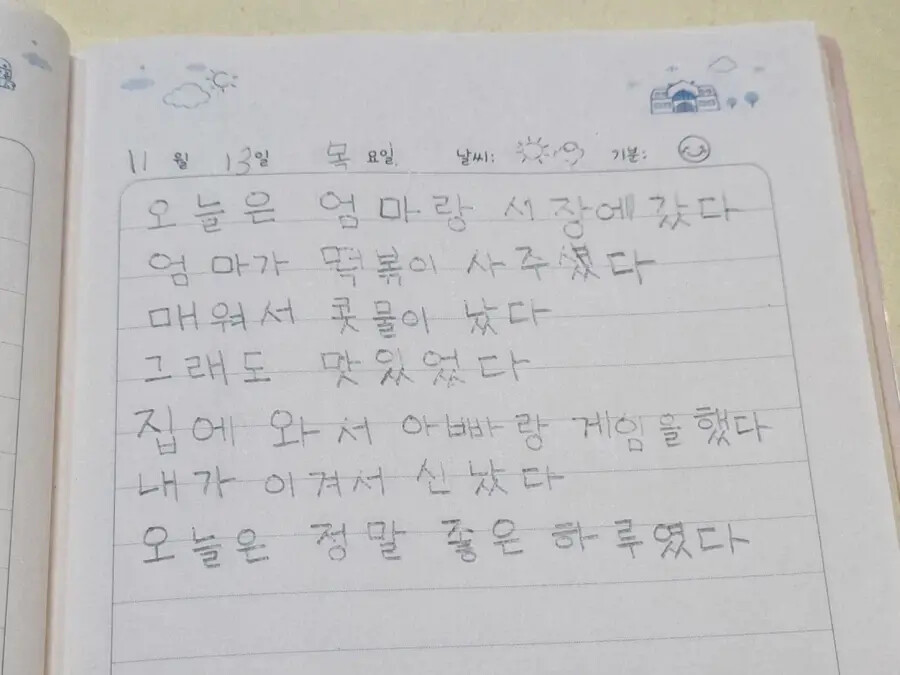 11 월 13일 목 요일. 날씨: 기분:
오늘은 엄마랑 서장에갔다
엄마가 떡볶이 사주셨다
매워서 콧물이 났다
그래도 맛있었다
집에 와서 아빠랑 게임을했다
내가 이겨서 신났다
오늘은 정말 좋은 하루였다